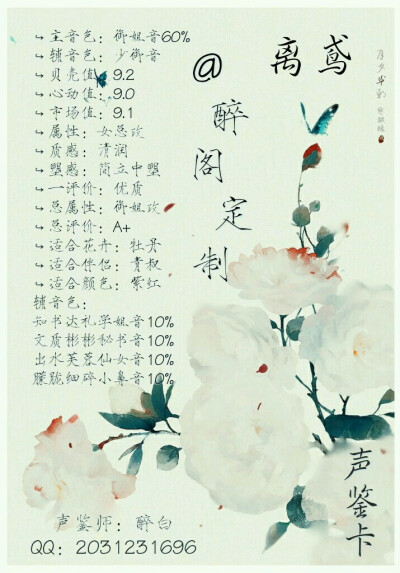 ↪主音色：御姐音60%
↪辅音色：少御音
↪贝壳值：9.2
↪心动值：9.0
↪市场值：9.1
↪属性：女总攻
↪质感：清润
↪塑感：简立中塑
↪一评价：优质
↪总属性：御姐攻
↪总评价：A+
↪适合花卉：牡景
↪适合伴侣：青叔
↪适合颜色：紫红
辅音色：
知书达礼学姐音10%
文质彬彬秘书音10%
出水芙蓉仙女音10%
朦胧细碎小鼻音10%
@离鸢
醉阁定制
声鉴卡
声鉴师：醉白
QQ：2031231696